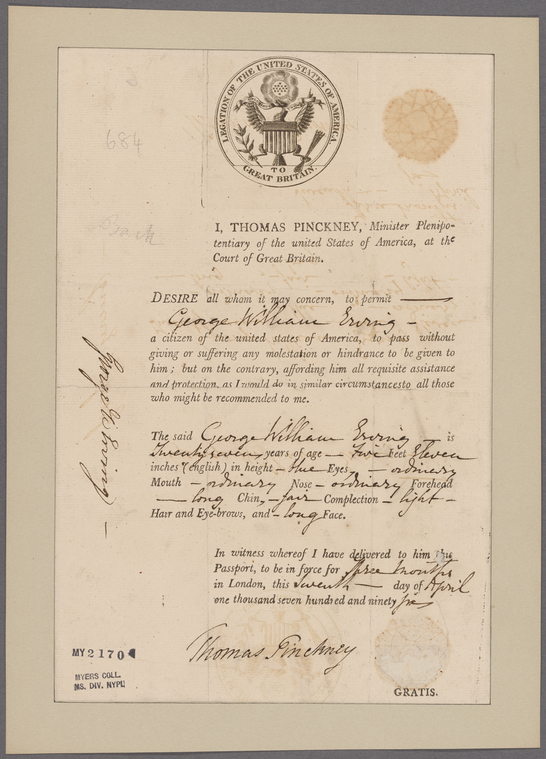 LEGATION OF THE UNITED STATES OF AMERICA
TO
GREAT BRITAIN.
684
I, THOMAS PINCKNEY, Minister Plenipo-
tentiary of the united States of America, at the
Court of Great Britain.
DESIRE all whom it may concern, to permit —
George William Erving –
a citizen of the united states of America, to pass without
giving or suffering any molestation or hindrance to be given to
him; but on the contrary, affording him all requisite assistance
and protection, as I would do in similar circumstances to all those
who might be recommended to me.
The said George William Erving is
Twenty seven years of age — five Feet Eleven
inches (english) in height – blue Eyes, – ordinary
Mouth – ordinary Nose – ordinary Forehead
— long Chin, – fair Complection – light –
Hair and Eye-brows, and – long Face.
In witness whereof I have delivered to him this
Passport, to be in force for three months
in London, this seventh — day of April
one thousand seven hundred and ninety six
Thomas Pinckney
GRATIS.
George W Erving
MY 2170
MYERS COLL.
MS. DIV. NYPL